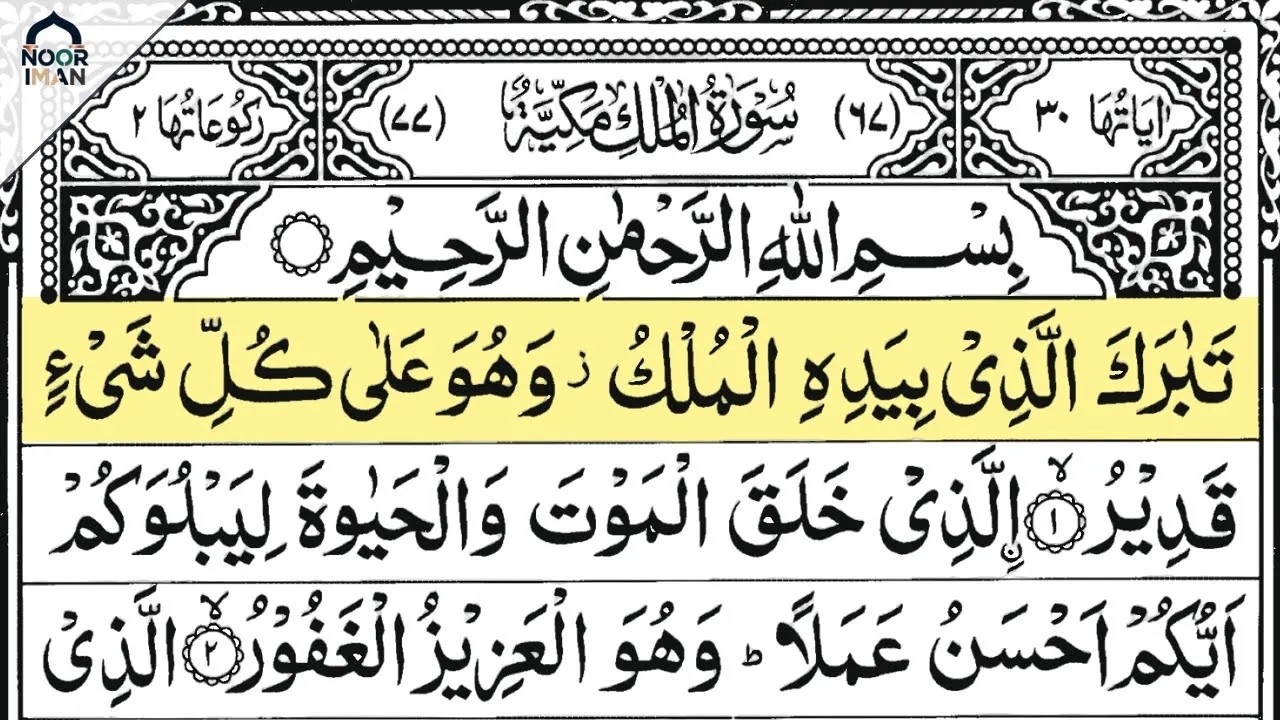 NOOR
IMAN
اٰيَاتُهَا ٣٠ (٦٧) سُوْرَةُ الْمُلْكِ مَكِّيَّةٌ (٧٧) رُكُوْعَاتُهَا ٢
بِسْمِ اللّٰهِ الرَّحْمٰنِ الرَّحِيْمِ
تَبٰرَكَ الَّذِىْ بِيَدِهِ الْمُلْكُ ز وَهُوَ عَلٰى كُلِّ شَىْءٍ
قَدِيْرُ ۙ﴿١﴾ ۨالَّذِىْ خَلَقَ الْمَوْتَ وَالْحَيٰوةَ لِيَبْلُوَكُمْ
اَيُّكُمْ اَحْسَنُ عَمَلًا ؕ وَهُوَ الْعَزِيْزُ الْغَفُوْرُ ۙ﴿٢﴾ الَّذِىْ